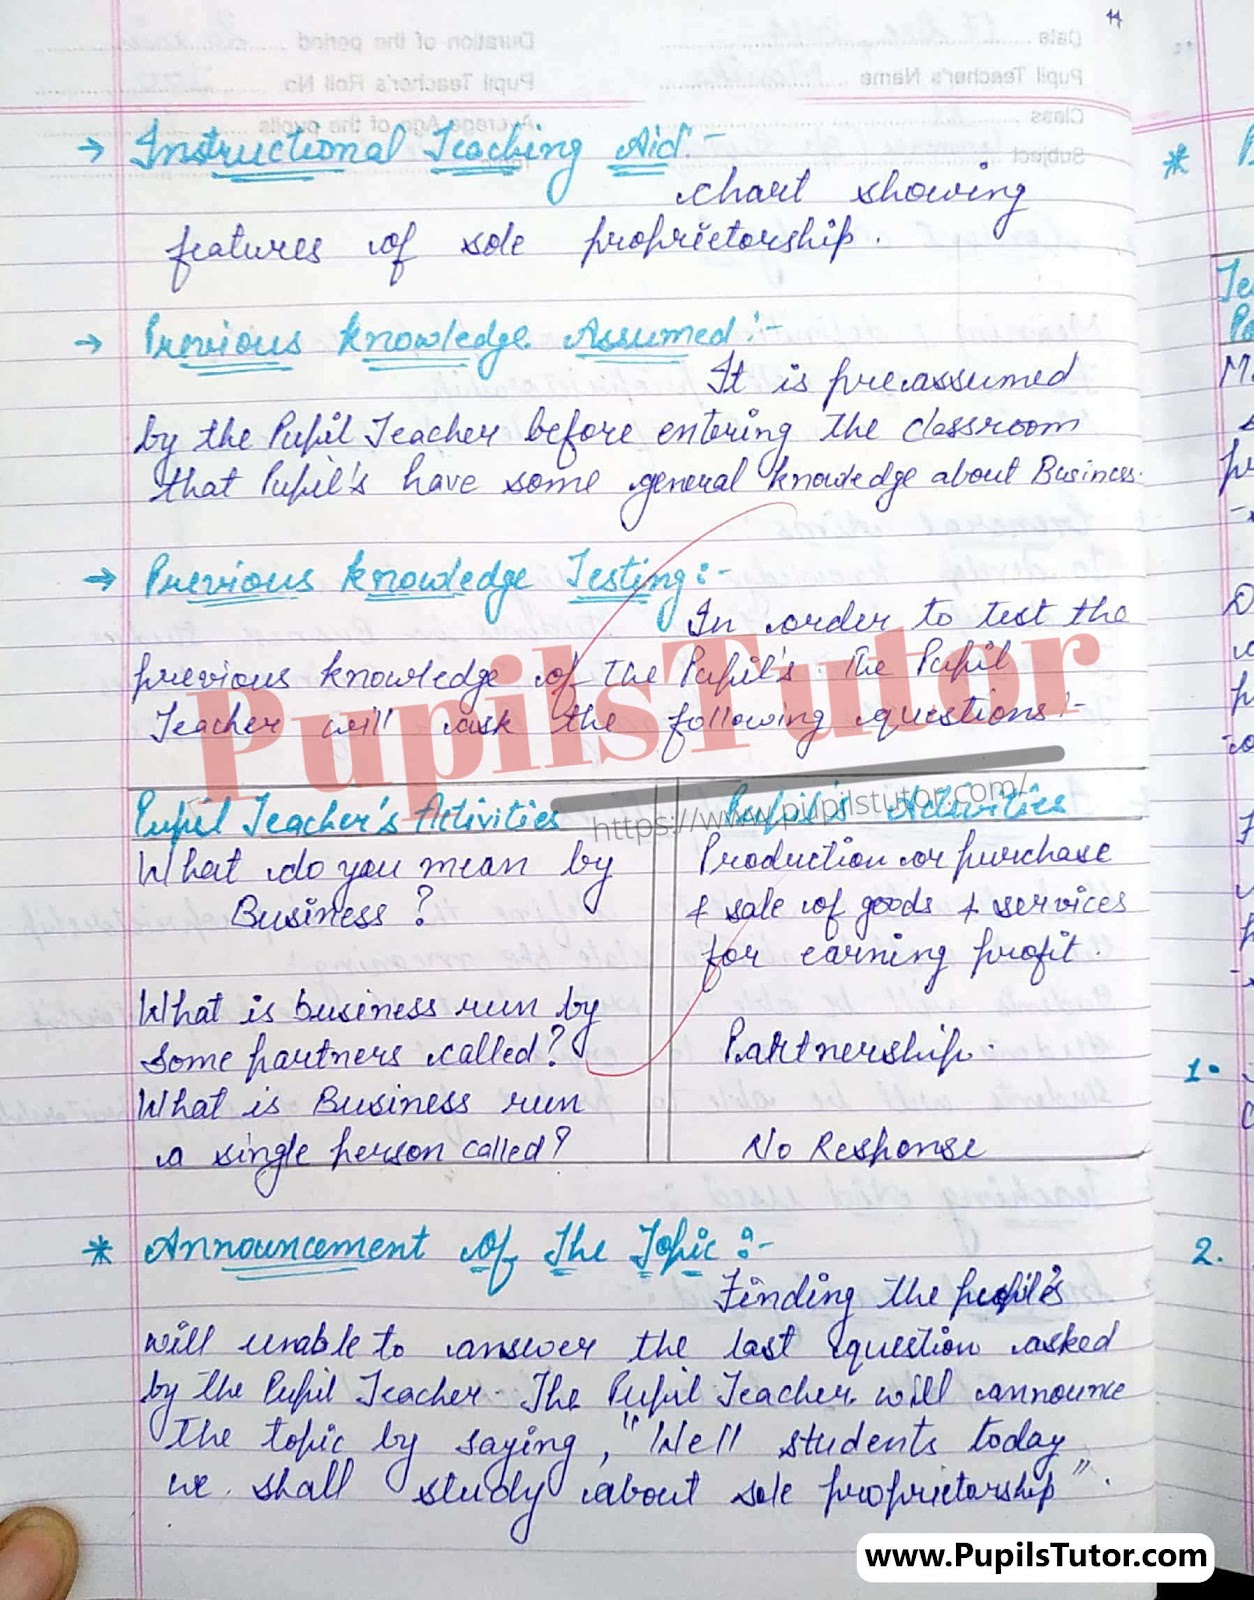 11
→ Instructional Teaching Aid:-
chart showing
features of sole proprietorship.
→ Previous knowledge Assumed:-
It is preassumed
by the Pupil Teacher before entering the classroom
that Pupil's have some general knowledge about Business.
→ Previous knowledge Testing:-
In order to test the
previous knowledge of the Pupil's. The Pupil
Teacher will ask the following questions:-
PupilsTutor
https://www.pupilstutor.com/
Pupil Teacher's Activities
What do you mean by
Business?
What is business run by
some partners called?
What is Business run
a single person called?
Pupil's Activities
Production or purchase
& sale of goods & services
for earning profit.
Partnership.
No Response
* Announcement Of The Topic:-
Finding the pupil's
will unable to answer the last question asked
by the Pupil Teacher. The Pupil Teacher will announce
the topic by saying, "Well students today
we shall study about sole proprietorship".
*
1.
2.
www.PupilsTutor.com